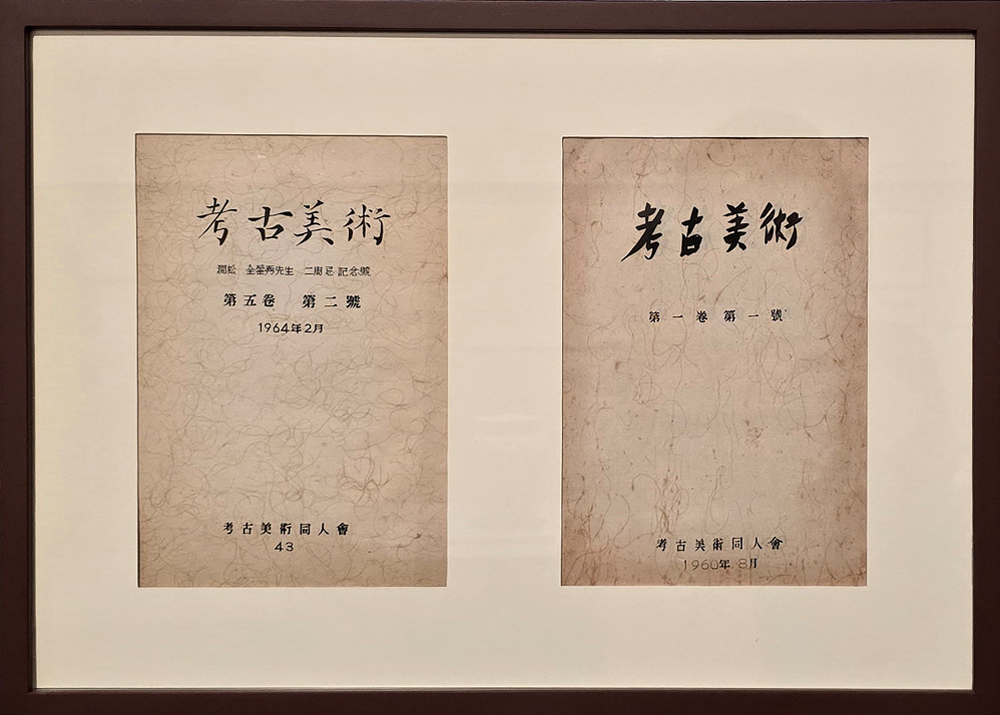 考古美術
澗松 全鎣弼先生 二周忌記念號
第五卷 第二號
1964年2月
考古美術同人會
43
考古美術
第一卷 第一號
考古美術同人會
1960年 8月